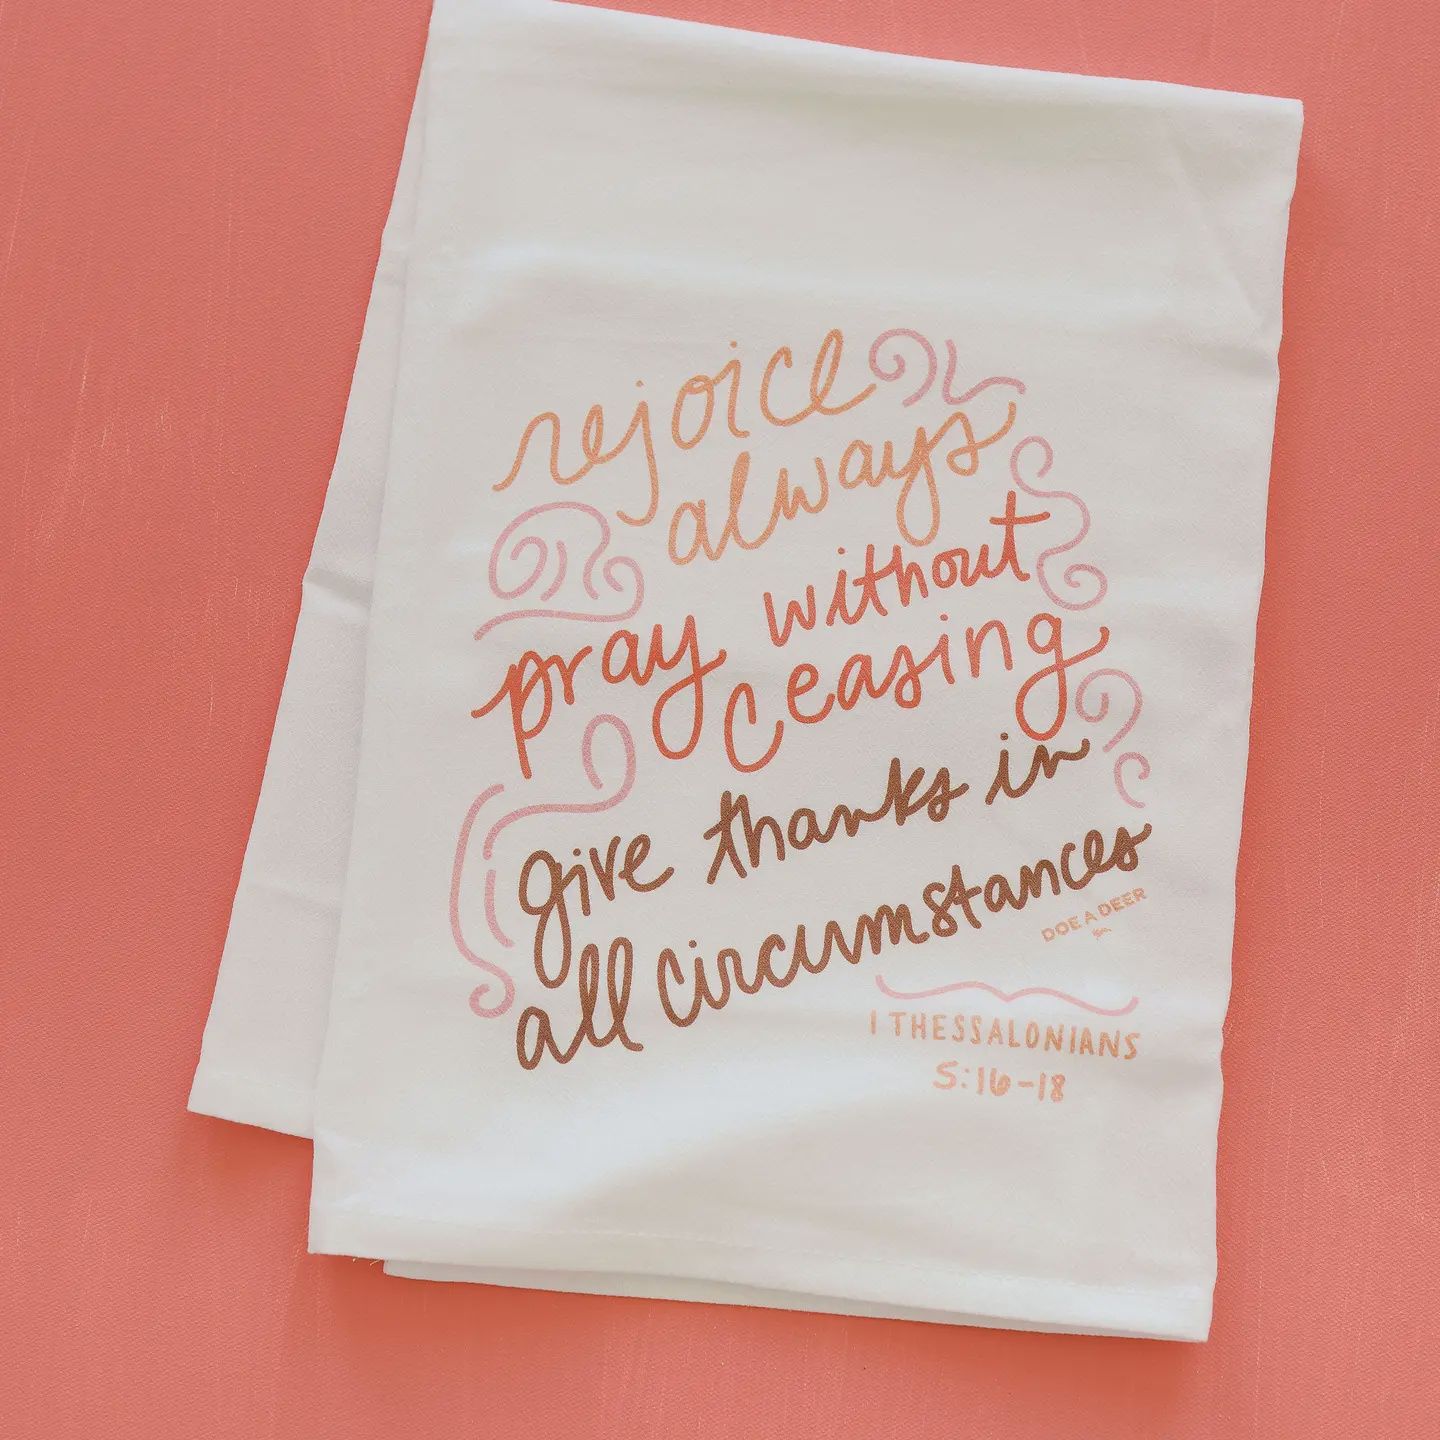 rejoice
always
pray without
ceasing
give thanks in
all circumstances
DOE A DEER
1 THESSALONIANS
5:16-18